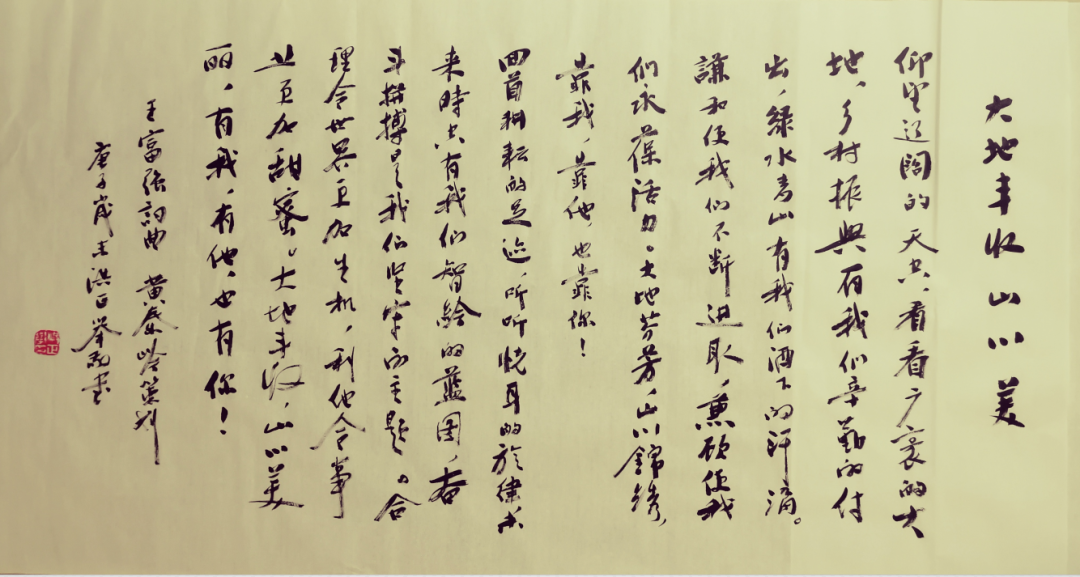 大地丰收山川美
仰望辽阔的天空，看看广袤的大
地，乡村振兴有我们辛勤的付
出，绿水青山有我们洒下的汗滴。
谦和使我们不断进取，兼融使我
们永葆活力。大地芬芳，山川锦绣，
靠我，靠他，也靠你！
回首耕耘的足迹，听听悦耳的旋律，未
来时空有我们智绘的蓝图，奋
斗拼搏是我们坚守的主题。合
理令世界更加生机，利他令事
业更加甜蜜。大地丰收，山川美
丽，有我，有他，也有你！
王富强词曲 黄秦岭策划
庚子岁末洪